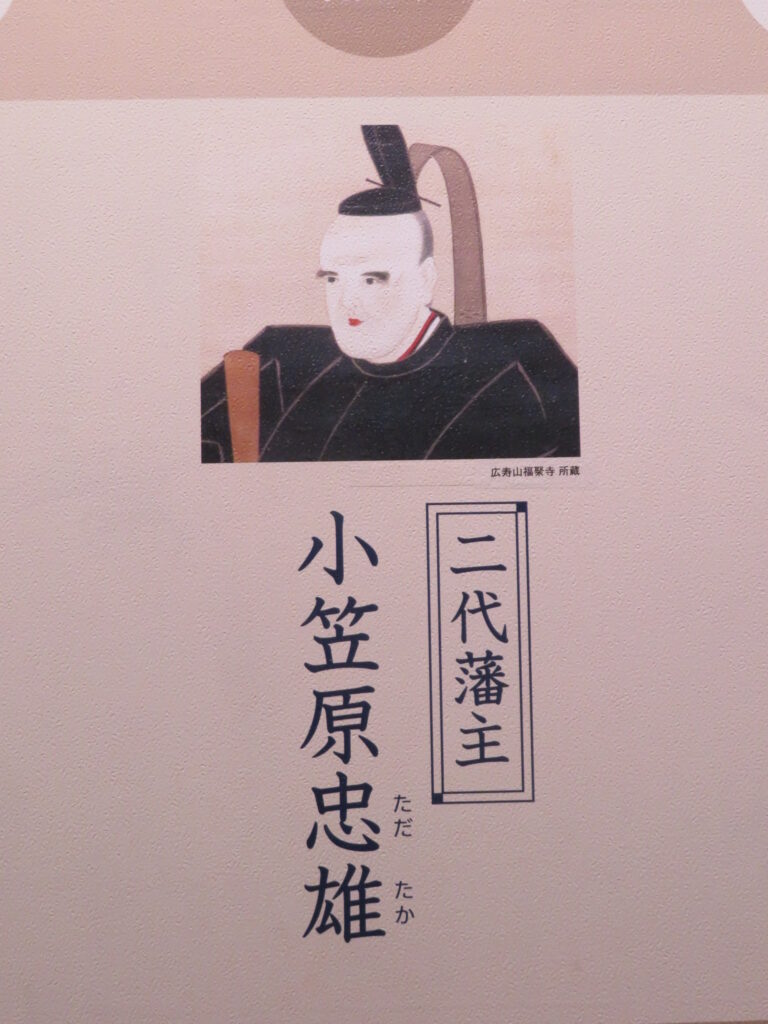 広寿山福聚寺 所蔵
二代藩主
小笠原忠雄
ただ たか